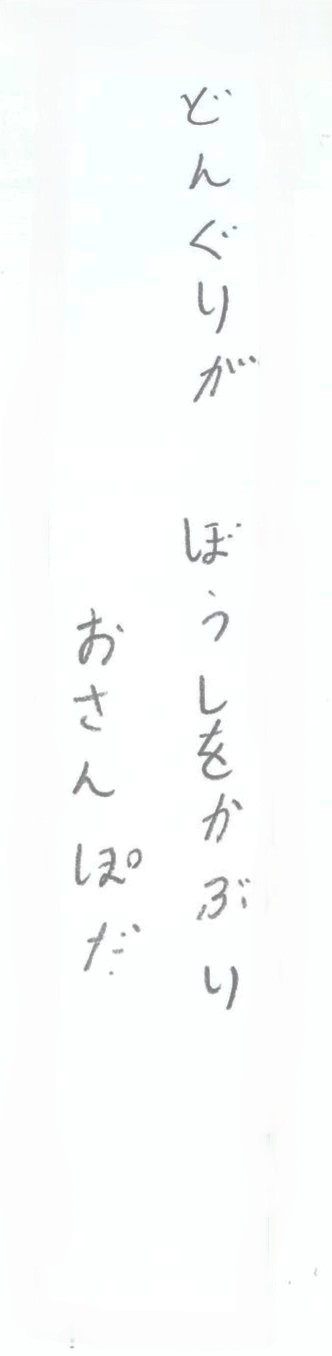 どんぐりが　ぼうしをかぶり
おさんぽだ